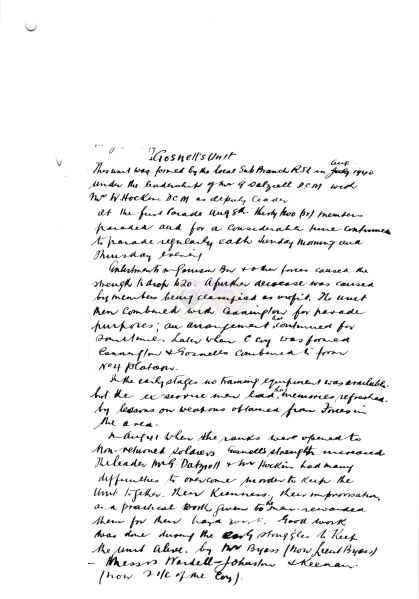 Gosnell's Unit
This unit was formed by the local Sub Branch RSL in Aug 1940
under the leadership of Mr G Dalzell DCM with
Mr W Hockin DCM as deputy leader
at the first Parade Aug 8th thirty two (32) members
paraded and for a considerable time continued
to parade regularly each Sunday morning and
Thursday evening
Enlistments in Garrison Bn & other forces caused the
strength to drop to 20. A further decrease was caused
by members being classified as unfit. The unit
then combined with Cannington for parade
purposes; an arrangement that continued for
sometime. Later when C Coy was formed
Cannington & Gosnells combined to form
No 4 platoon.
In the early stages no training equipment was available.
but the ex service men had their memories refreshed.
by lessons on weapons obtained from Forces in
the area.
In Aug 41 when the ranks were opened to
Non-returned soldiers Gosnells strength increased
The leader Mr G Dalzell & Mr Hockin had many
difficulties to overcome in order to keep the
Unit together. Their Keenness, their improvisation,
and practical work given to the men rewarded
them for their hard work. Good work
was done during the early struggles to keep
the unit alive. by Mr Byass (now Lieut Byass)
- Messrs Wardell-Johnston & Keenan.
(now 2 I/C of the Coy).